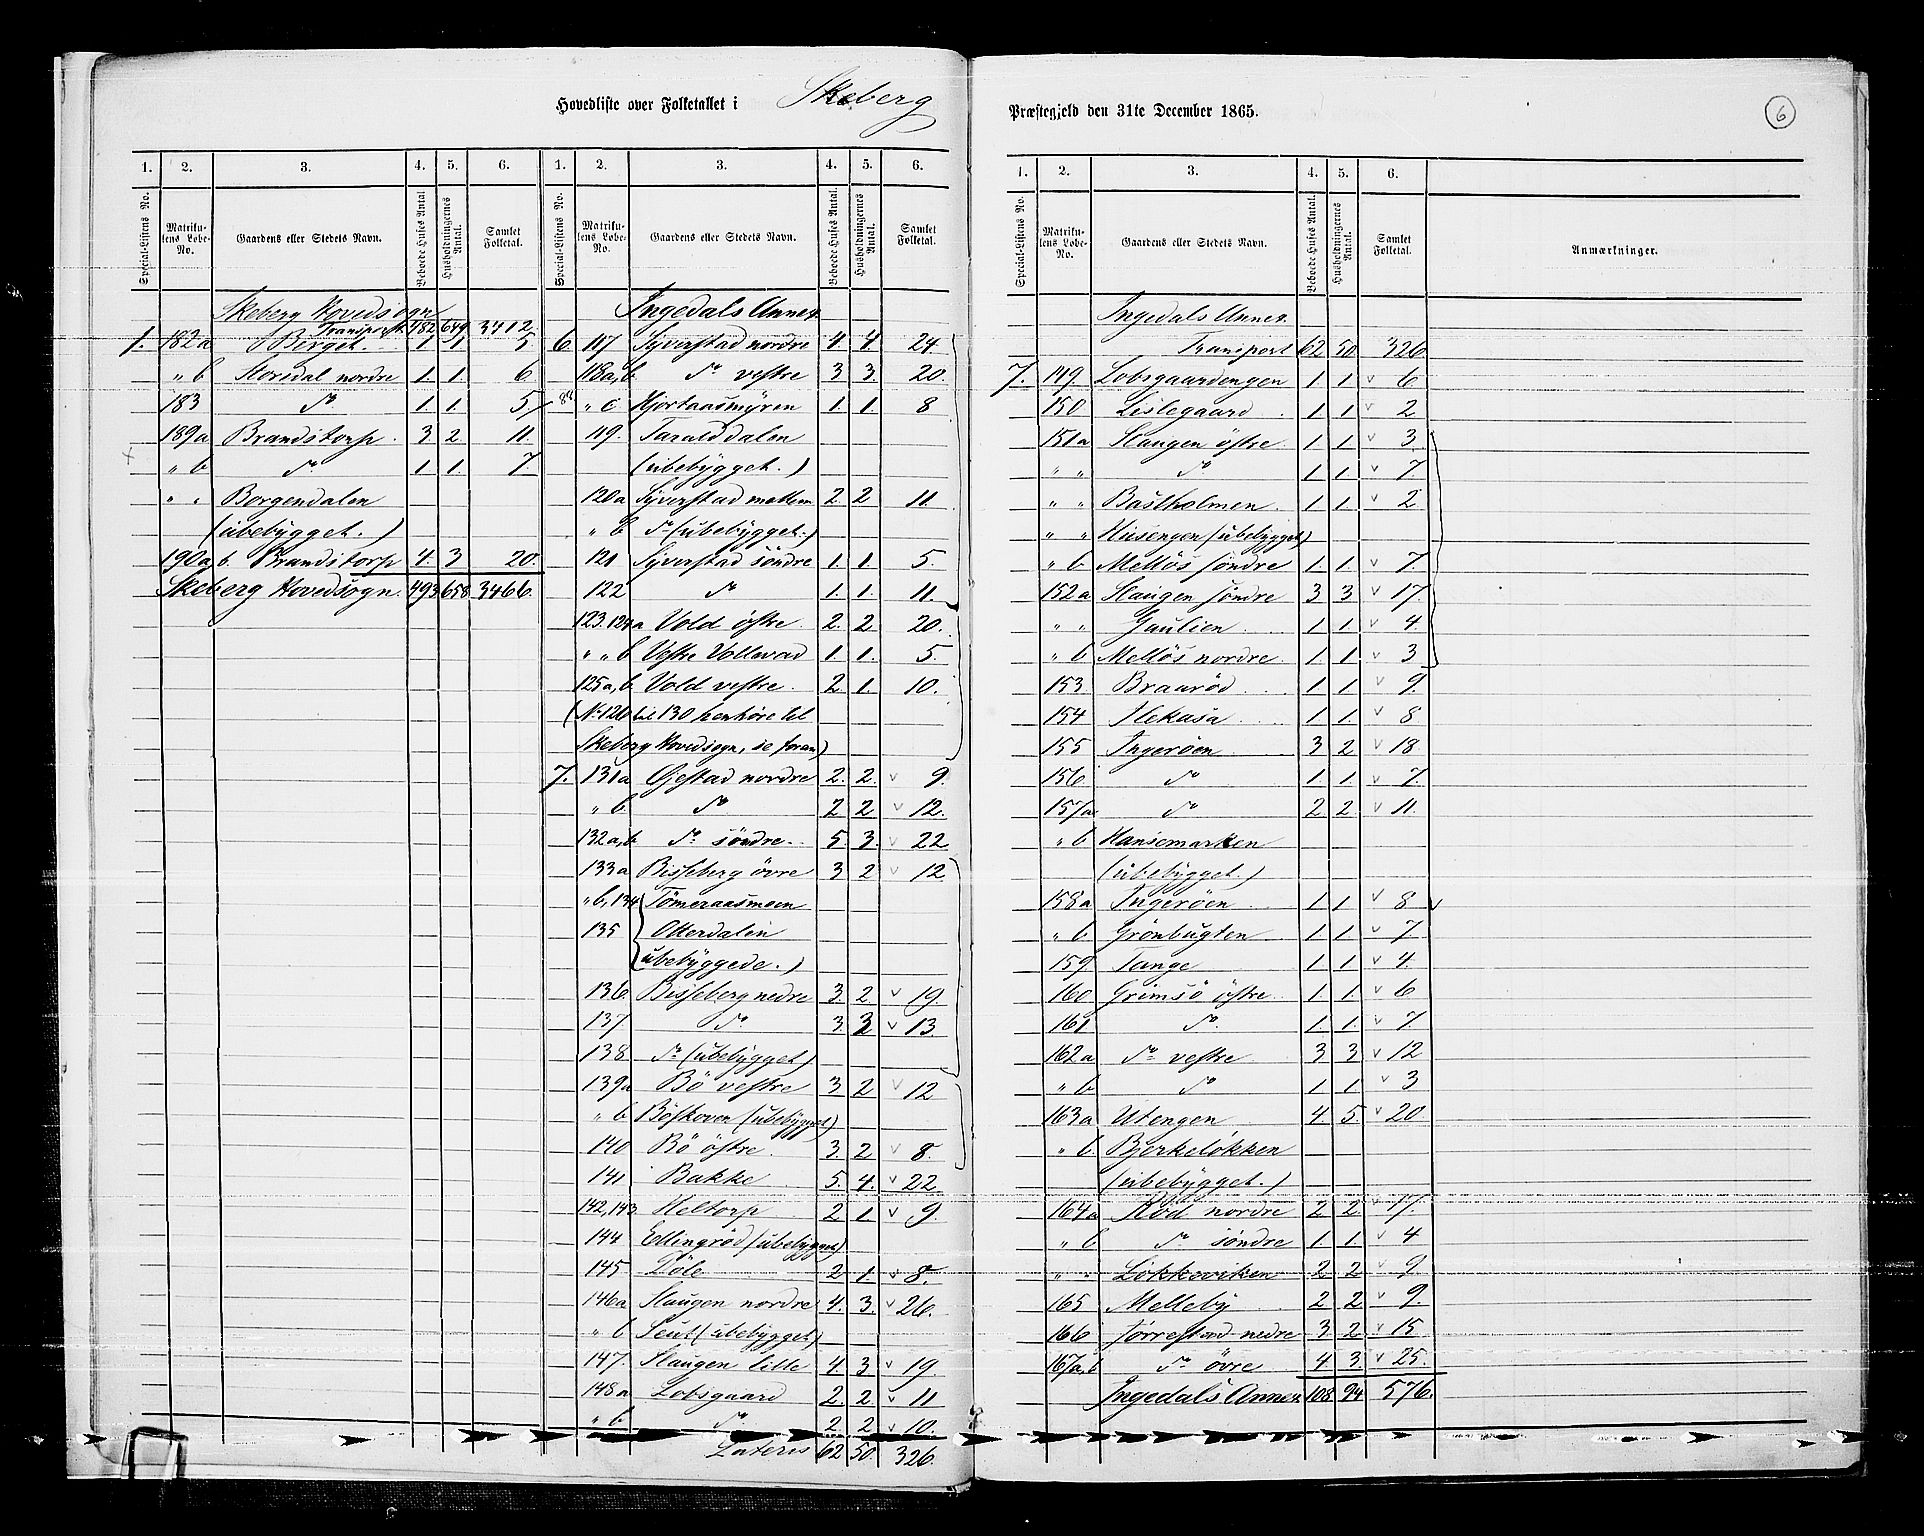 Hovedliste over Folketallet i Skeberg Præstegjeld den 31te December 1865.
6
1. 2. 3. 4. 5. 6.
Special-Listens No. Matrikulens Løbe-No. Gaardens eller Stedets Navn. Beboede Huses Antal Husholdningernes Antal. Samlet Folketal.
Skeberg Hovedsogn
Transport 482 649 3412.
1. 182a Berget. 1 1 5.
" b Storedal nordre 1. 1. 6.
183 do 1. 1. 5.
189a Brandstorp. 3 2. 11.
" b do 1 1. 7.
" " Borgendalen
(ubebygget.)
190a, b. Brandstorp 4. 3 20.
Skeberg Hovedsogn. 493 658 3466.
1. 2. 3. 4. 5. 6.
Special-Listens No. Matrikulens Løbe-No. Gaardens eller Stedets Navn. Beboede Huses Antal. Husholdningernes Antal. Samlet Folketal.
Ingedals Annex
6 117 Syverstad nordre 4. 4. 24.
118a, b do vestre 3 3. 20.
" c Hjortaasmyren 1. 1. 8
119. Taralddalen
(ubebygget.)
120a Syverstad mellem 2. 2 11.
" b do (ubebygget.)
121 Syverstad söndre 1. 1. 5.
122 do 1. 1. 11.
123. 124a Vold östre. 2. 2 20.
" " b Vestre Vollavad 1. 1. 5.
125a, b Vold vestre. 2 1. 10.
(No 126 til 130 henhöre til
Skeberg Hovedsogn, se foran)
7. 131a Gjestad nordre 2. 2. 9.
" b do 2 2 12.
132a, b do söndre. 5. 3. 22
133a Bisseberg övre 3 2 12
" b, 134 Tömeraasmoen
135 Otterdalen
ubebyggede.)
136. Bisseberg nedre 3. 2 19.
137 do 3. 3 13.
138. do (ubebygget)
139a Bö vestre 3 2 12
" b Böskoven (ubebygget)
140 Bö östre. 3. 2 8.
141 Bakke 5. 4. 22
142, 143 Heltorp 2 1 9.
144 Edlingröd (ubebygget)
145 Döle 2 1. 8.
146a Slaugen nordre 4. 3. 26.
" b Seut (ubebygget)
147. Slaugen lille 4. 3 19.
148a Lobsgaard 2. 2. 11
" b do 2 2 10.
Lateris 62 50. 326.
1. 2. 3. 4. 5. 6.
Special-Listens No. Matrikulens Løbe-No. Gaardens eller Stedets Navn. Beboede Huses Antal. Husholdningernes Antal. Samlet Folketal. Anmærkninger.
Ingedals Annex.
Transport 62 50 326
7. 149. Lobsgaardengen 1. 1. 6
150 Lislegaard 1. 1. 2
151a Slaugen östre. 1. 1. 3.
" " do 1 1. 7
" " Bastholmen. 1. 1. 2
" " Husengen (ubebygget)
" b Mellös söndre 1. 1. 7.
152a Slaugen söndre 3 3 17.
" " Gaulien 1. 1. 4.
" b Mellös nordre. 1. 1 3
153. Braaröd 1 1. 9.
154 Ilekasa 1 1. 8
155 Ingeröen 3 2 18.
156. do 1. 1. 7.
157a do 2 2. 11.
" b Hansemarken
(ubebygget.)
158a Ingeröen 1. 1. 8
" b Grönbugten 1. 1. 7
159. Tange 1. 1 4.
160 Grimsö östre. 1. 1. 6
161 do 1. 1. 7
162a do vestre 3 3 12
" b do 1 1. 3
163a Utengen 4. 5. 20
" b Bjerkelökken
(ubebygget.)
164a Röd nordre 2 2. 17.
" b do söndre 1. 1. 4
" " Lökkeviken 2 2 9.
165 Melleby 2 2 9.
166 Torrestad nedre 3 2 15
167a, b do övre 4 3. 25.
Ingedals Annex. 108 94 576.